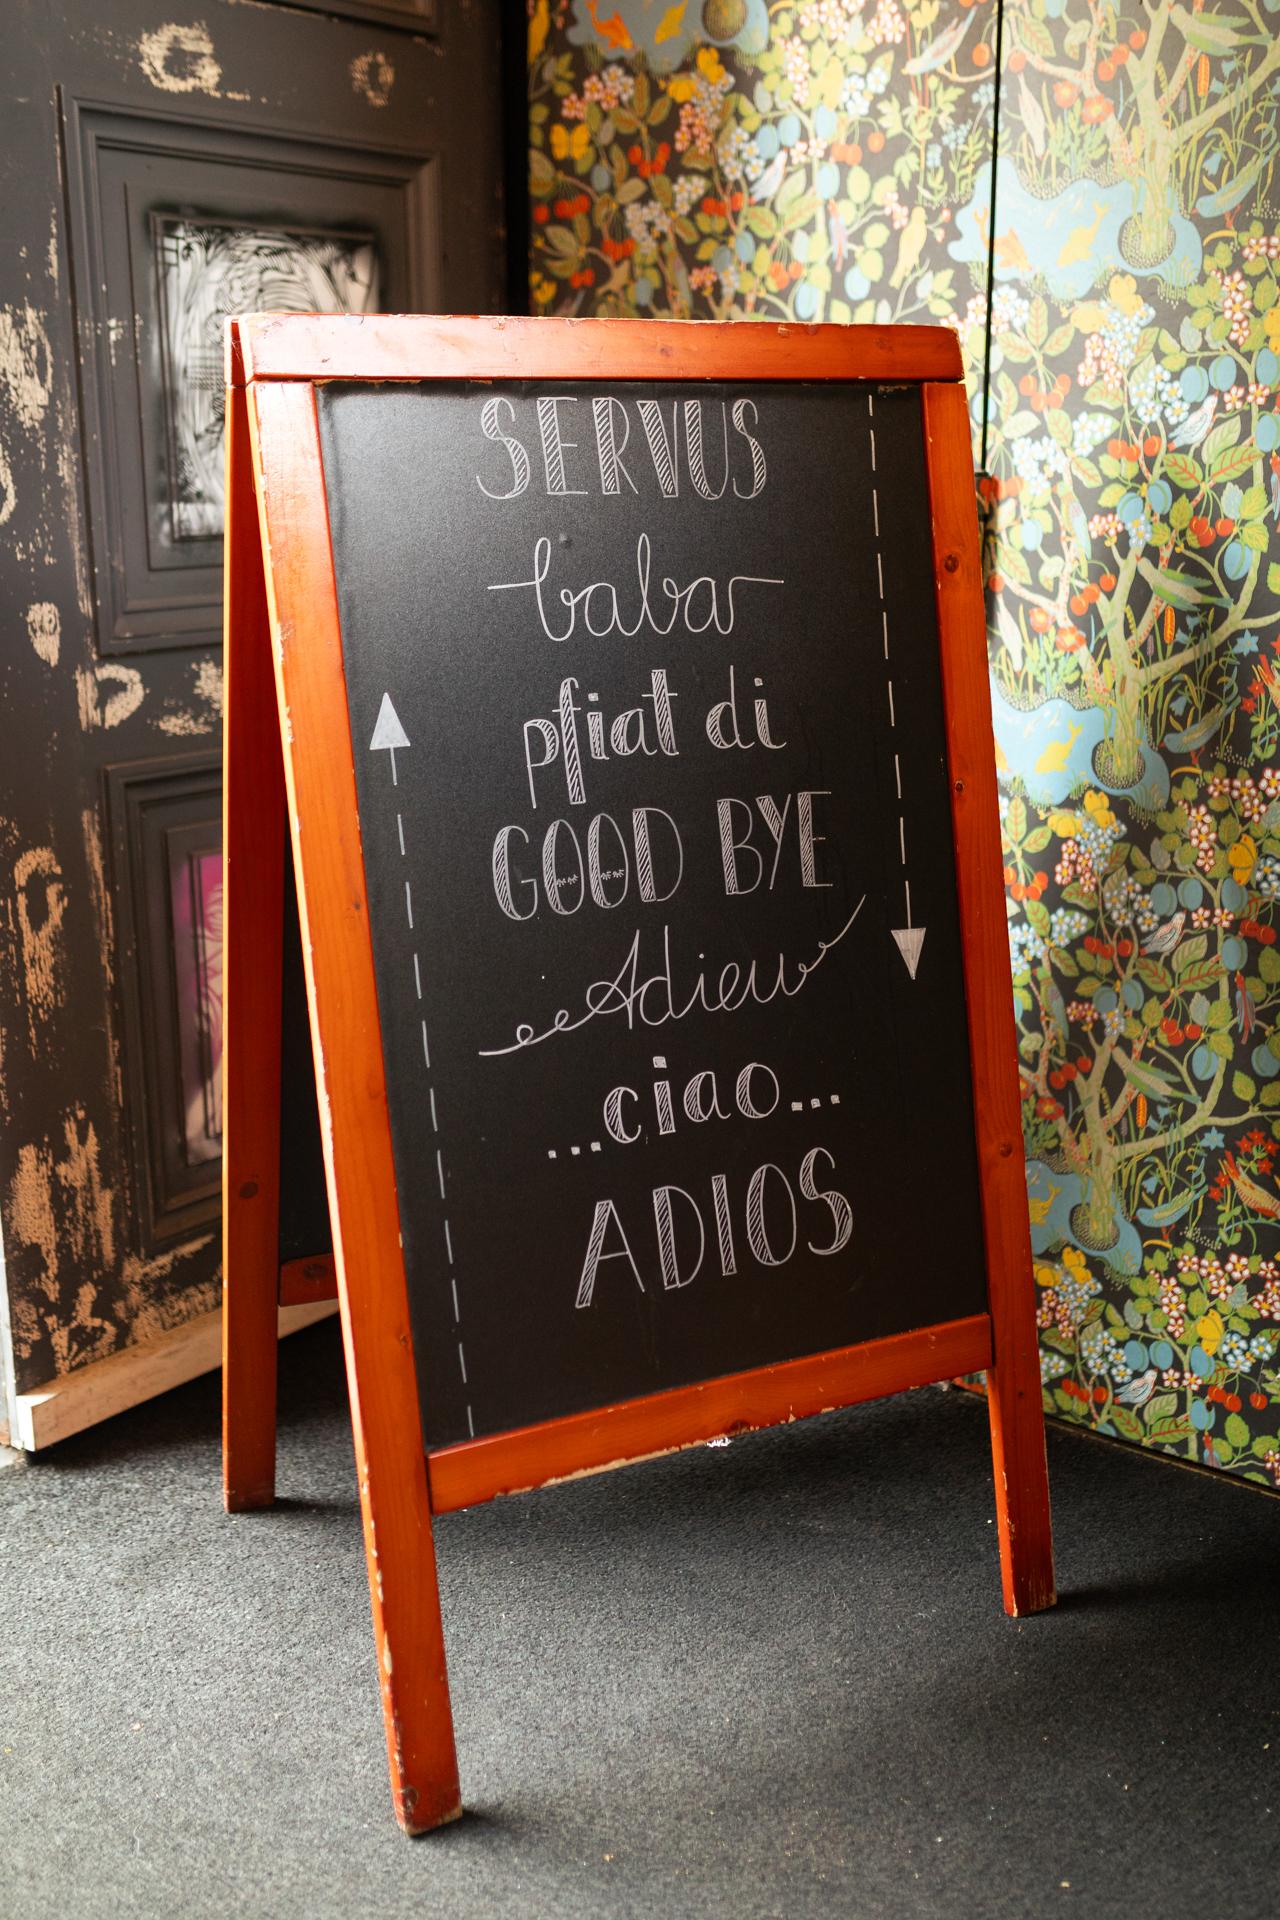 SERVUS
baba
pfiat di
GOOD BYE
Adieu
...ciao...
ADIOS